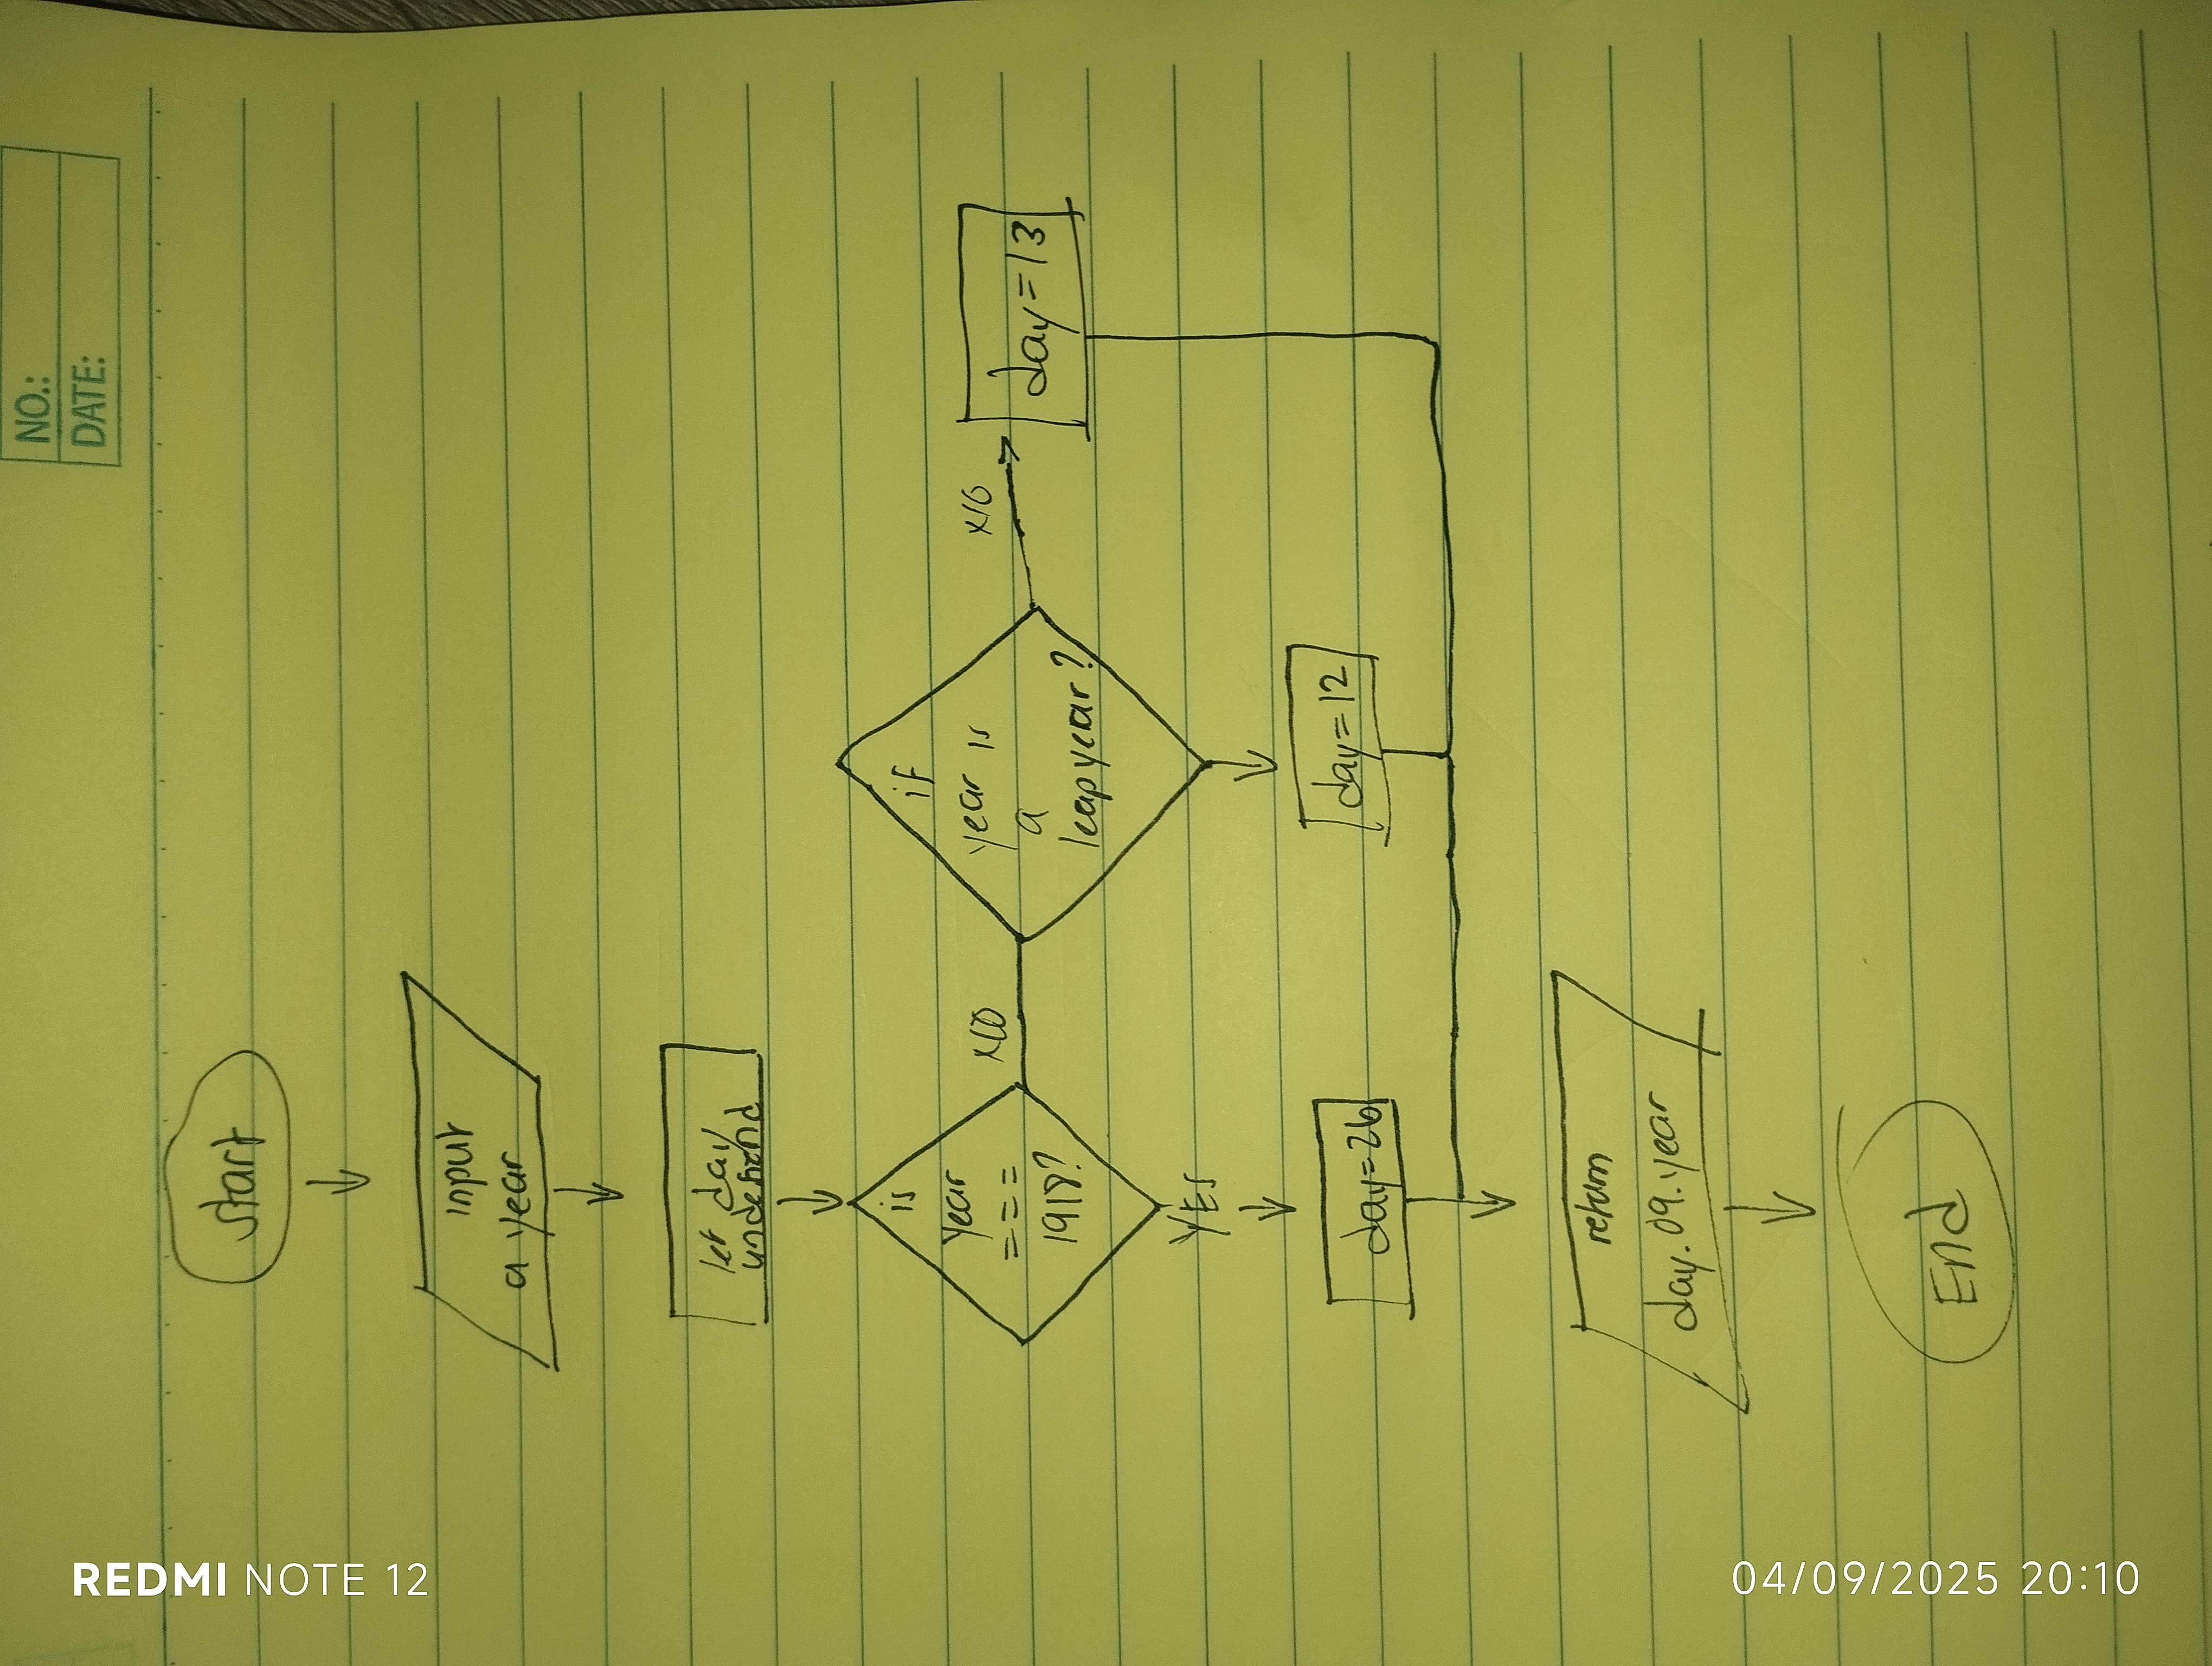 NO.:
DATE:
start
input
a year
let day
undefiend
is
year
====
1918?
NO
if
year is
a
leapyear?
NO
day=13
YES
day=26
day=12
return
day.09.year
End
REDMI NOTE 12
04/09/2025 20:10